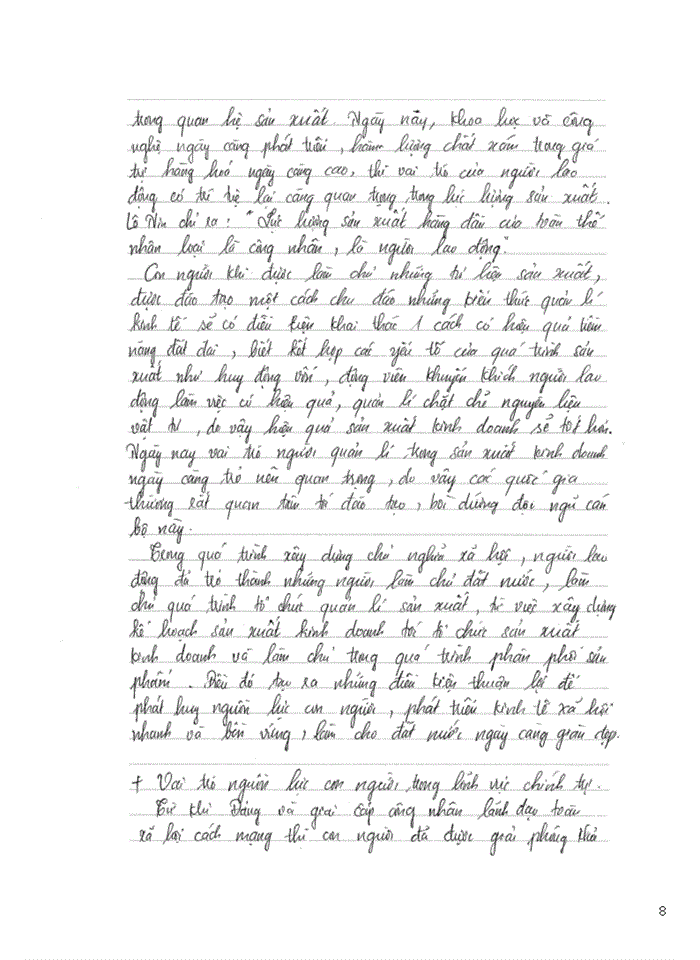 trong quan hệ sản xuất. Ngày này, khoa học và công
nghệ ngày càng phát triển, hàm lượng chất xám trong giá
trị hàng hoá ngày càng cao, thì vai trò của người lao
động có trí tuệ lại càng quan trọng trong lực lượng sản xuất.
Lê Nin chỉ ra: "Lực lượng sản xuất hàng đầu của toàn thể
nhân loại là công nhân, là người lao động."
Con người khi được làm chủ những tư liệu sản xuất,
được đào tạo một cách chu đáo những kiến thức quản lí
kinh tế sẽ có điều kiện khai thác 1 cách có hiệu quả tiềm
năng đất đai, biết kết hợp các yếu tố của quá trình sản
xuất như huy động vốn, động viên khuyến khích người lao
động làm việc có hiệu quả, quản lí chặt chẽ nguyên liệu
vật tư, do vậy hiệu quả sản xuất kinh doanh sẽ tốt hơn.
Ngày nay vai trò người quản lí trong sản xuất kinh doanh
ngày càng trở nên quan trọng, do vậy các quốc gia
thường rất quan tâm tới đào tạo, bồi dưỡng đội ngũ cán
bộ này.
Trong quá trình xây dựng chủ nghĩa xã hội, người lao
động đã trở thành những người làm chủ đất nước, làm
chủ quá trình tổ chức quản lí sản xuất, từ việc xây dựng
kế hoạch sản xuất kinh doanh tới tổ chức sản xuất
kinh doanh và làm chủ trong quá trình phân phối sản
phẩm. Điều đó tạo ra những điều kiện thuận lợi để
phát huy nguồn lực con người, phát triển kinh tế xã hội
nhanh và bền vững, làm cho đất nước ngày càng giàu đẹp.
+ Vai trò nguồn lực con người trong lĩnh vực chính trị.
Từ khi Đảng và giai cấp công nhân lãnh đạo toàn
xã hội cách mạng thì con người đã được giải phóng khỏi
8